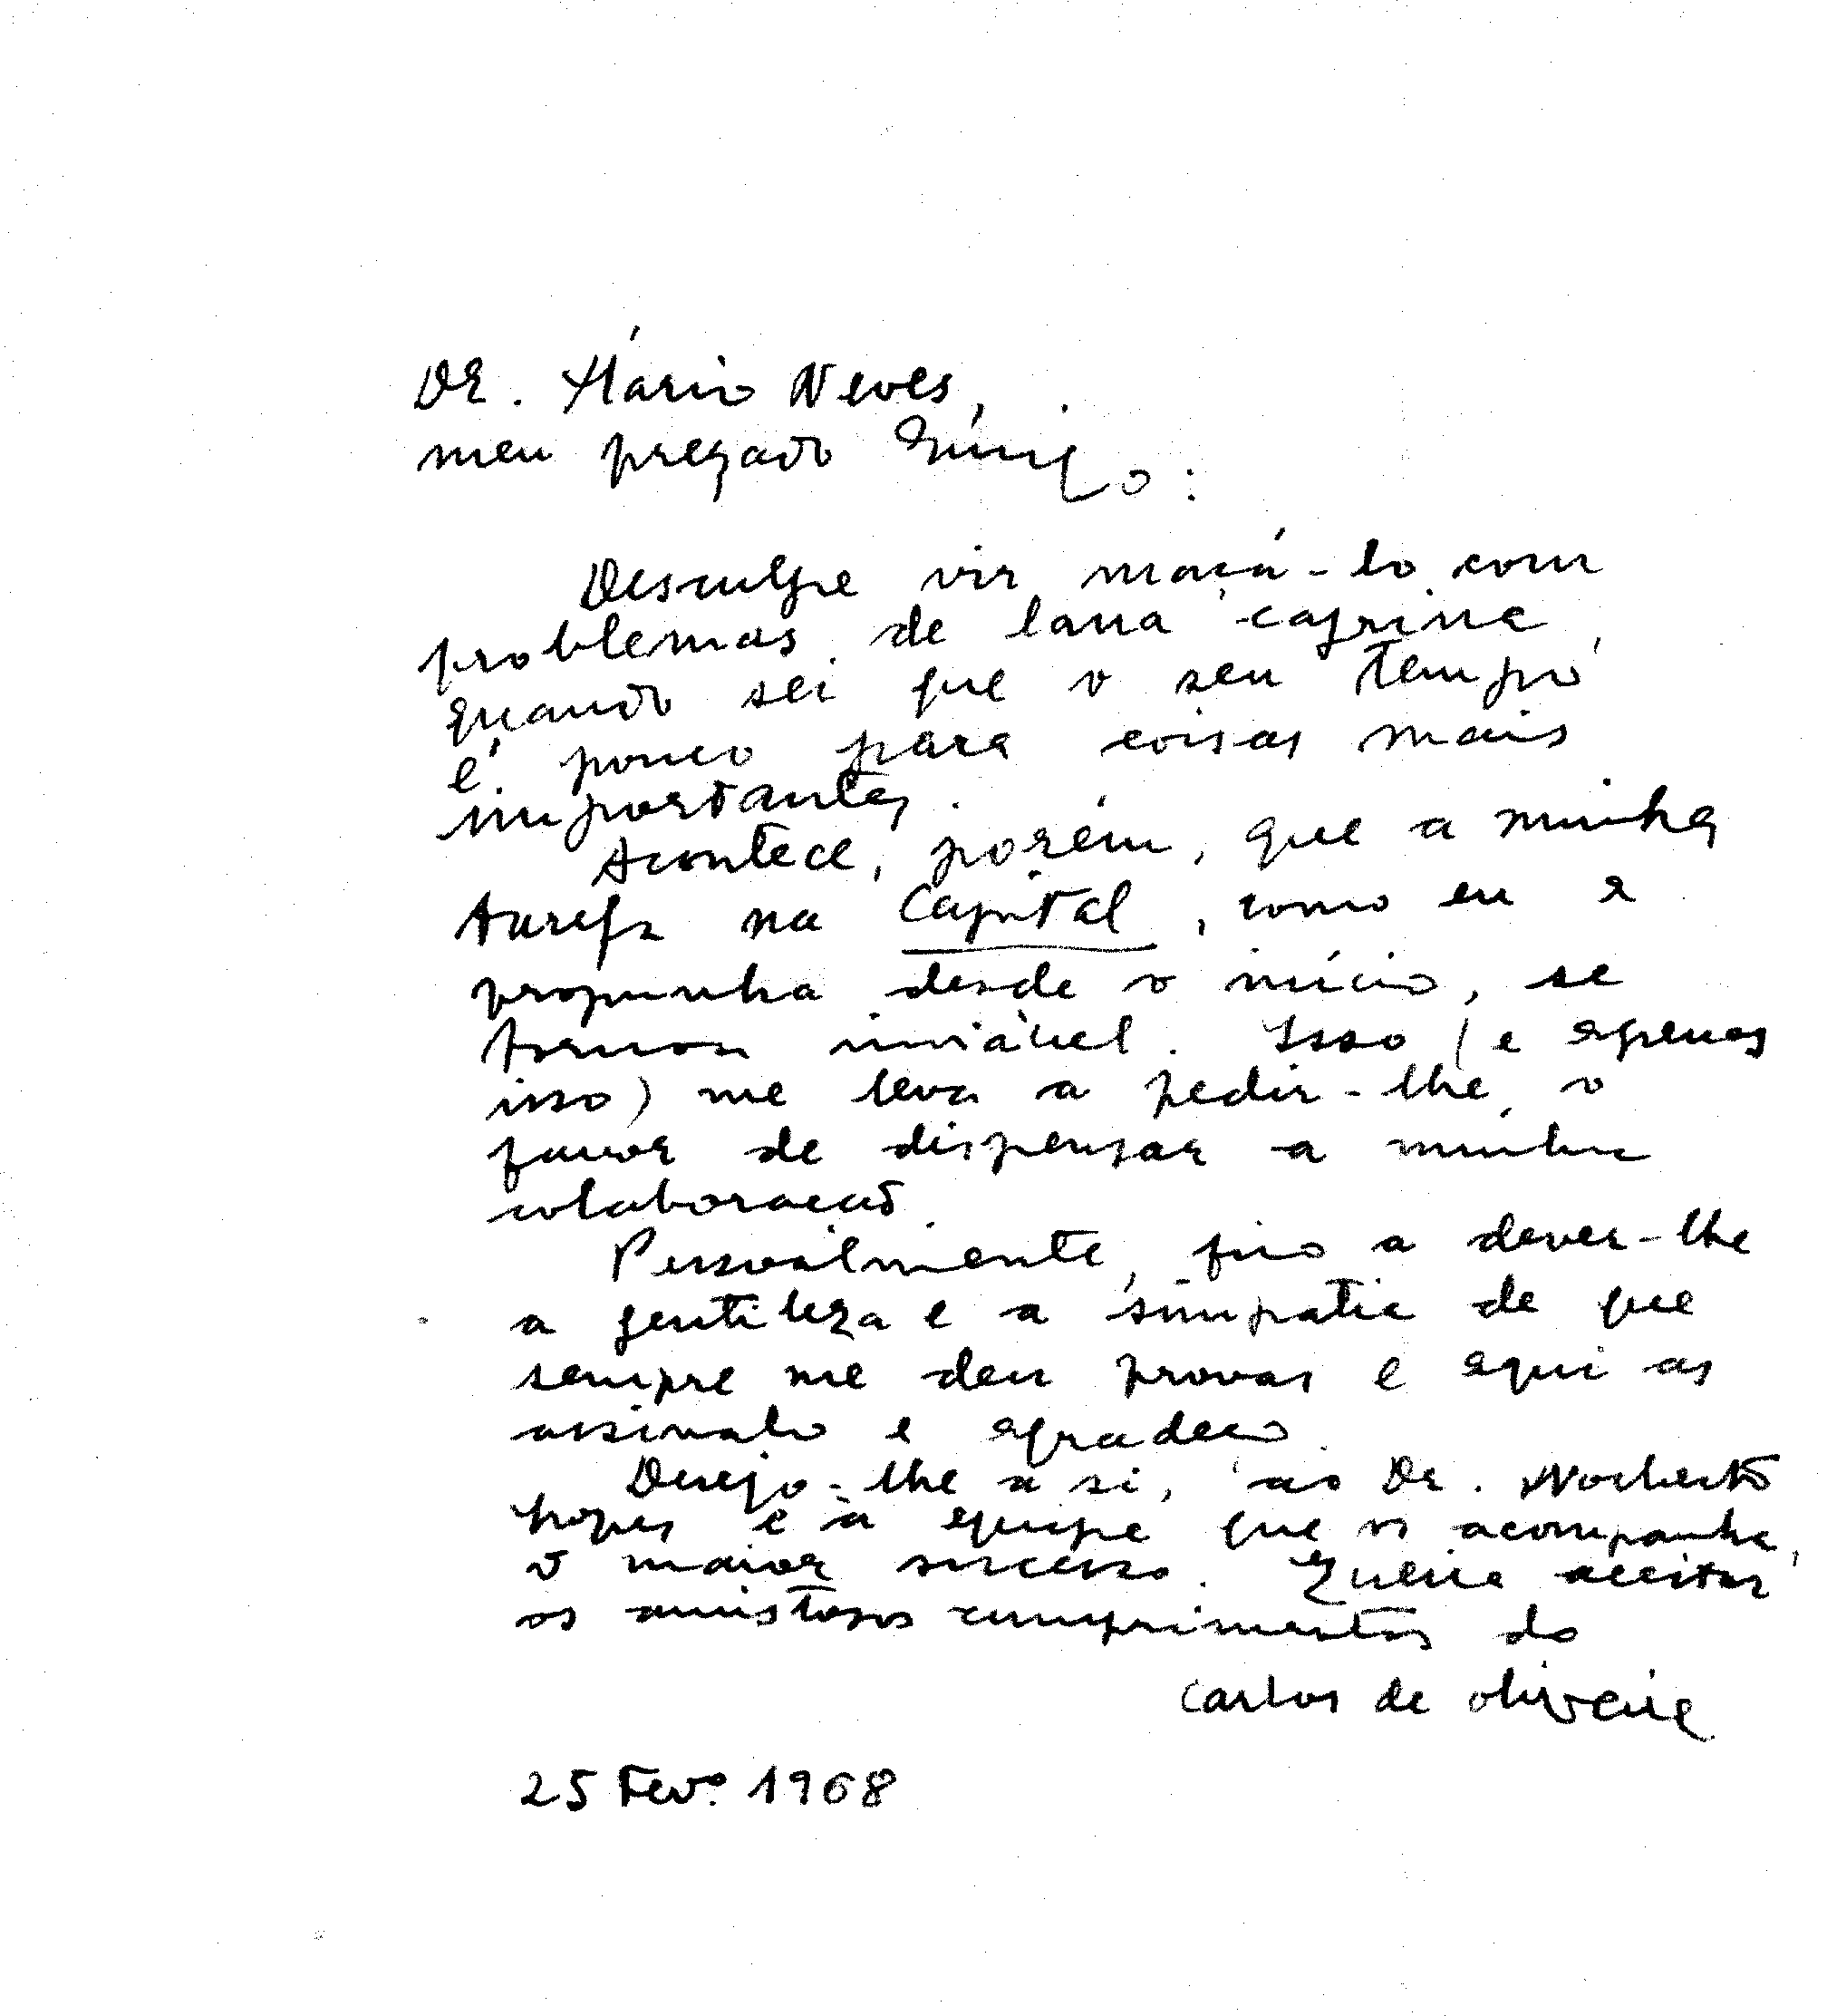 Dr. Mário Neves,
meu prezado Amigo:
Desculpe vir maçá-lo com
problemas de lana caprina,
quando sei que o seu tempo
é pouco para coisas mais
importantes.
Acontece, porém, que a minha
tarefa na Capital, como eu a
propunha desde o início, se
tornou inviável. Isso (e apenas
isso) me leva a pedir-lhe o
favor de dispensar a minha
colaboração.
Pessoalmente, fico a dever-lhe
a gentileza e a simpatia de que
sempre me deu provas e aqui as
assinalo e agradeço.
Desejo-lhe a si, ao Dr. Norberto
Lopes e à equipe que os acompanha,
o maior sucesso. Queira aceitar
os amistosos cumprimentos do
Carlos de Oliveira
25 Fevº. 1968